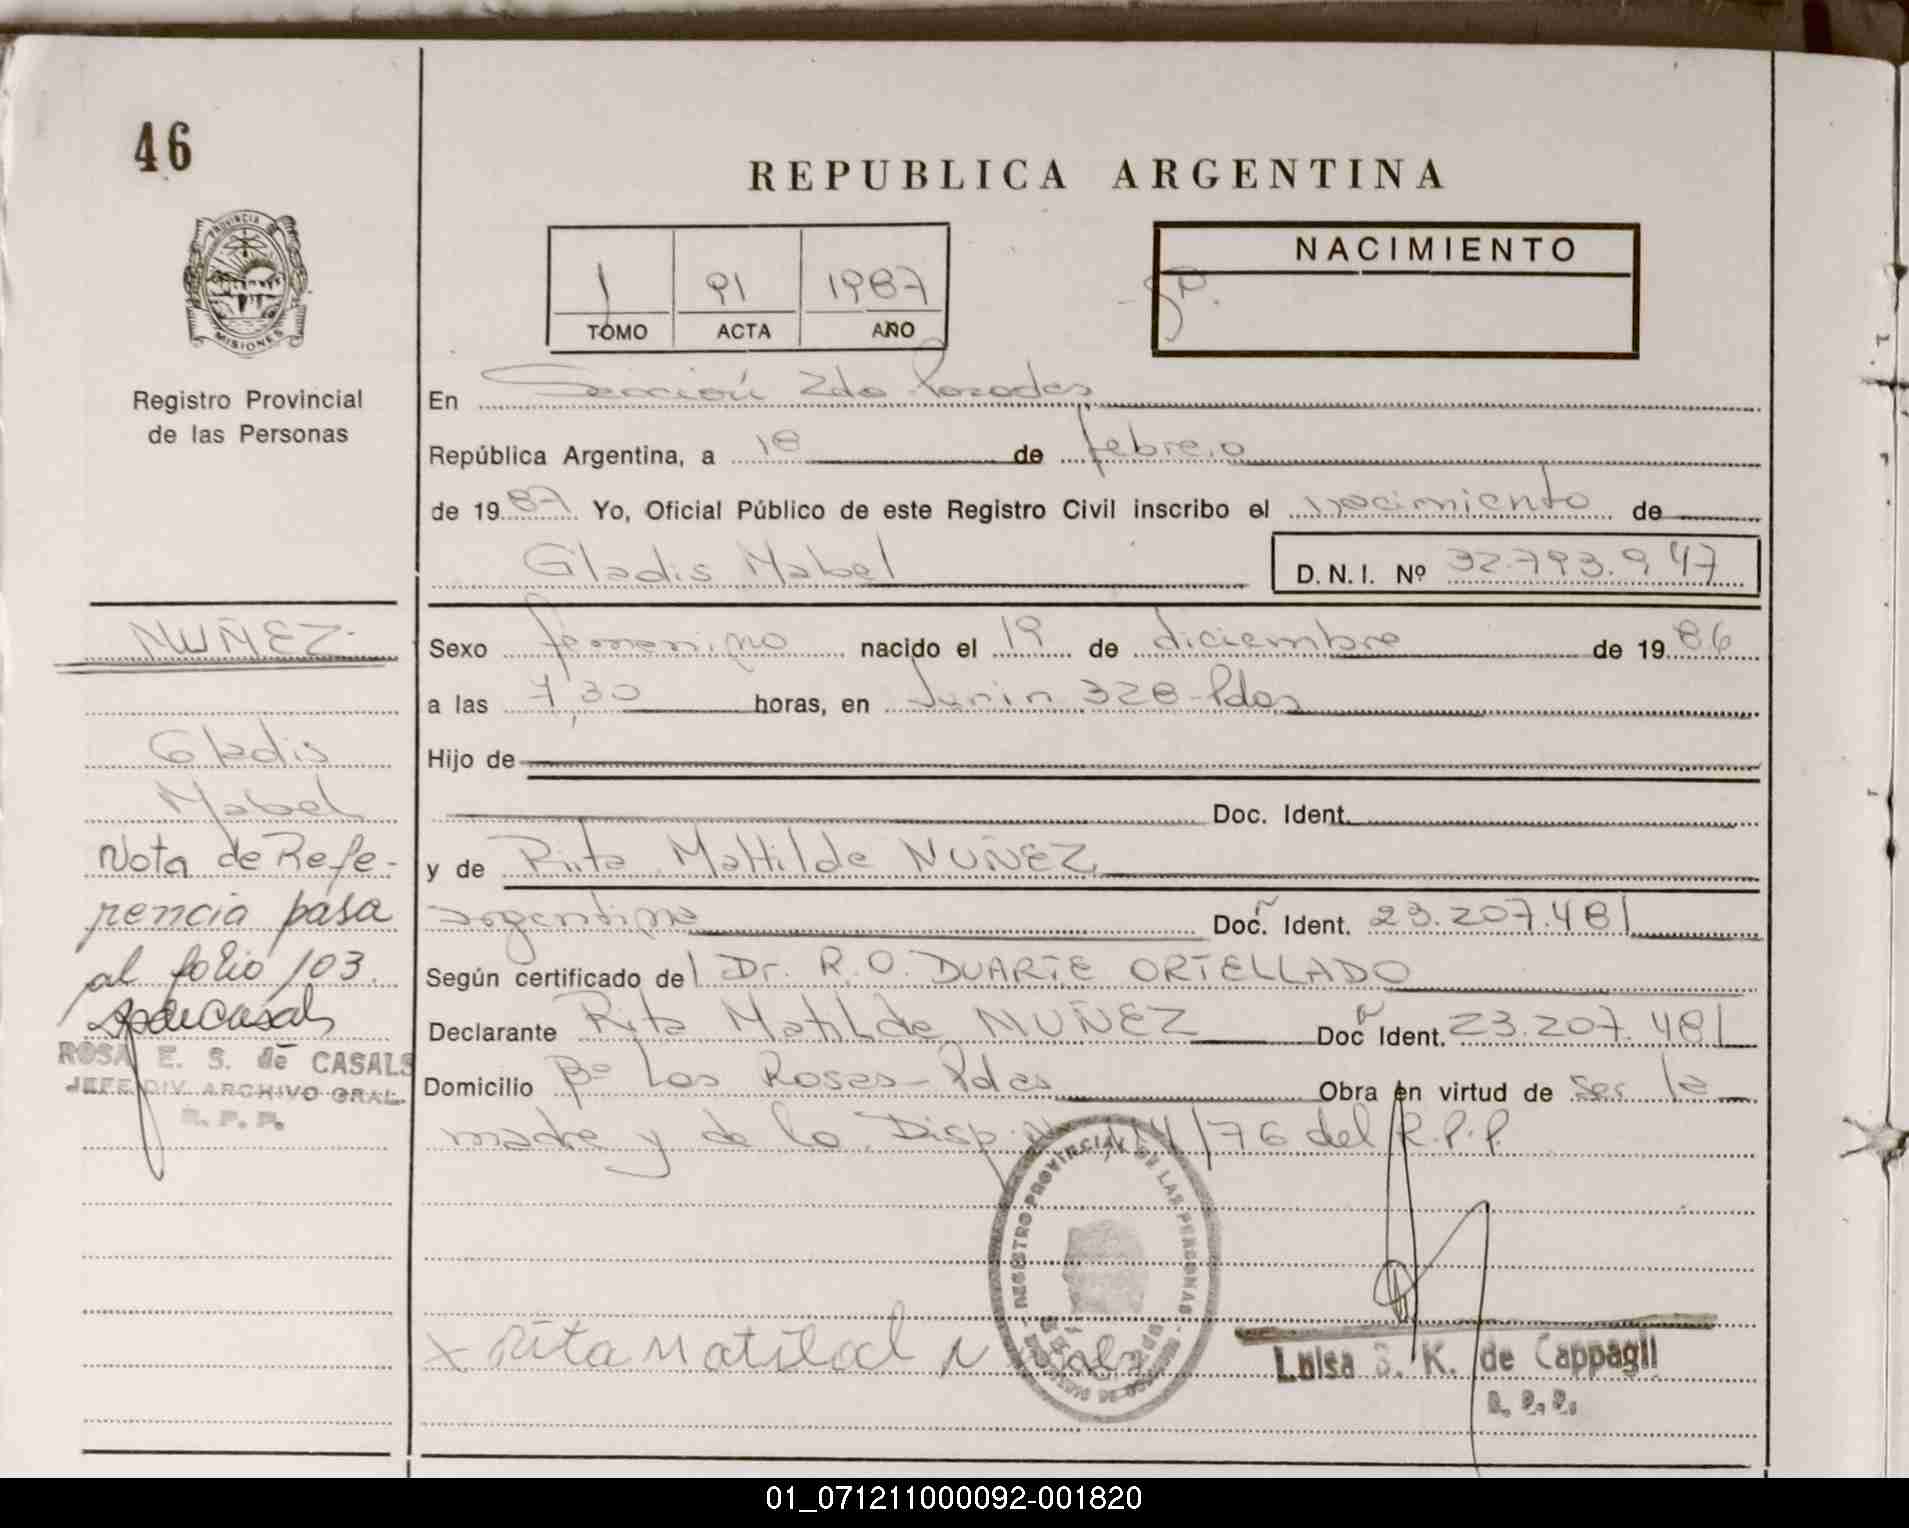 46
REPUBLICA ARGENTINA
PROVINCIA
MISIONES
Registro Provincial
de las Personas
1 91 1987
TOMO ACTA AÑO
NACIMIENTO
En Sección 2da Posadas
República Argentina, a 18 de febrero
de 1987 Yo, Oficial Público de este Registro Civil inscribo el nacimiento de
Gladis Mabel D.N.I. Nº 32.793.947
NUÑEZ
Gladis
Mabel
Nota de Refe-
rencia pasa
al folio 103.
ROSA E. S. de CASALS
JEFE DIV. ARCHIVO GRAL.
R. P. P.
Sexo femenino nacido el 19 de diciembre de 1986
a las 7,30 horas, en Junin 328-Pdas
Hijo de
Doc. Ident.
y de Rita Matilde NUÑEZ
argentina Doc. Ident. 23.207.481
Según certificado del Dr. R.O. DUARTE ORTELLADO
Declarante Rita Matilde NUÑEZ Doc Ident. 23.207.481
Domicilio Bº Las Rosas-Pdas Obra en virtud de ser la
madre y de la Disp. Nº 114/76 del R.P.P.
REGISTRO PROVINCIAL DE LAS PERSONAS
x Rita Matilad N
Luisa S. K. de Cappagli
R. P. P.
01_071211000092-001820